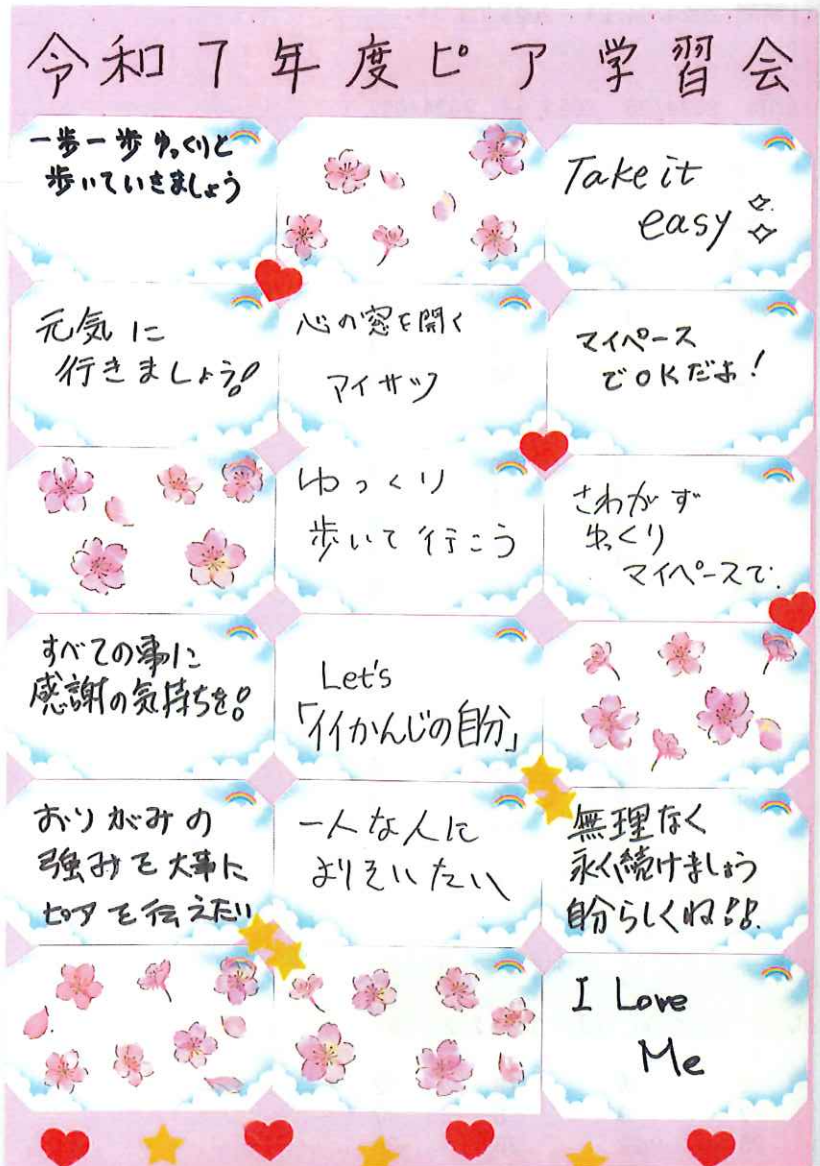 令和7年度ピア学習会
一歩一歩ゆっくりと
歩いていきましょう
Take it
easy
元気に
行きましょう!
心の窓を開く
アイサツ
マイペース
でOKだよ!
ゆっくり
歩いて行こう
さわがず
ゆっくり
マイペースで.
すべての事に
感謝の気持ちを!
Let's
「イイかんじの自分」
おりがみの
強みを大事に
ピアを伝えたい
一人な人に
よりそいたい
無理なく
永く続けましょう
自分らしくね!!
I Love
Me